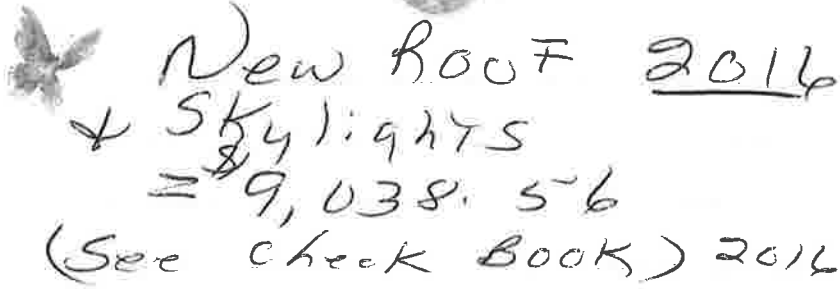 New Roof 2016
& Skylights
= $9,038.56
(See check Book) 2016